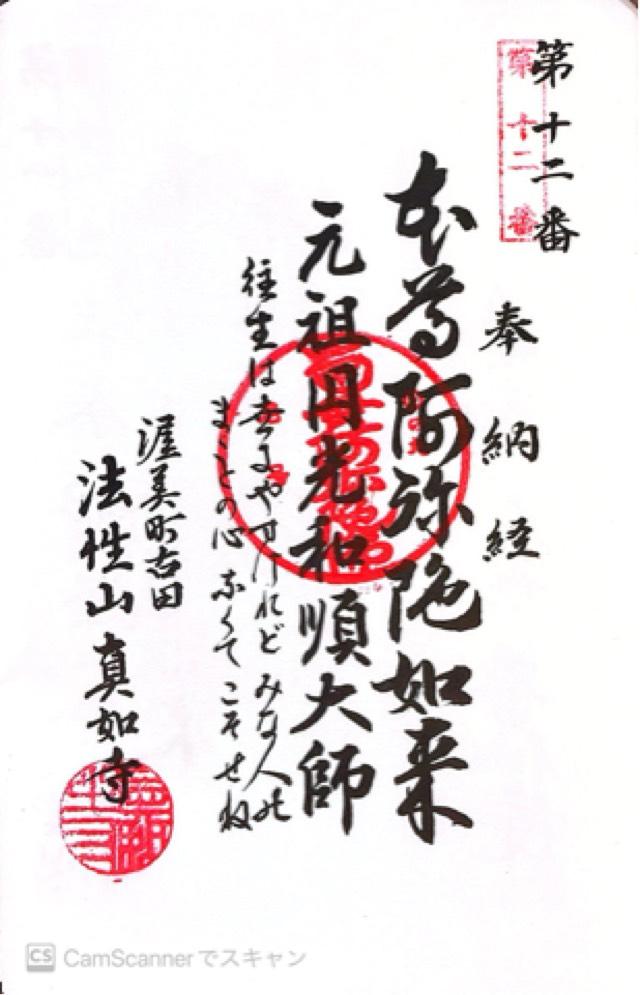 第十二番
第十二番
奉納経
本尊阿弥陀如来
元祖円光和順大師
往生は世にやすけれどみな人の
まことの心なくてこそせね
渥美町古田
法性山真如寺
CS CamScannerでスキャン